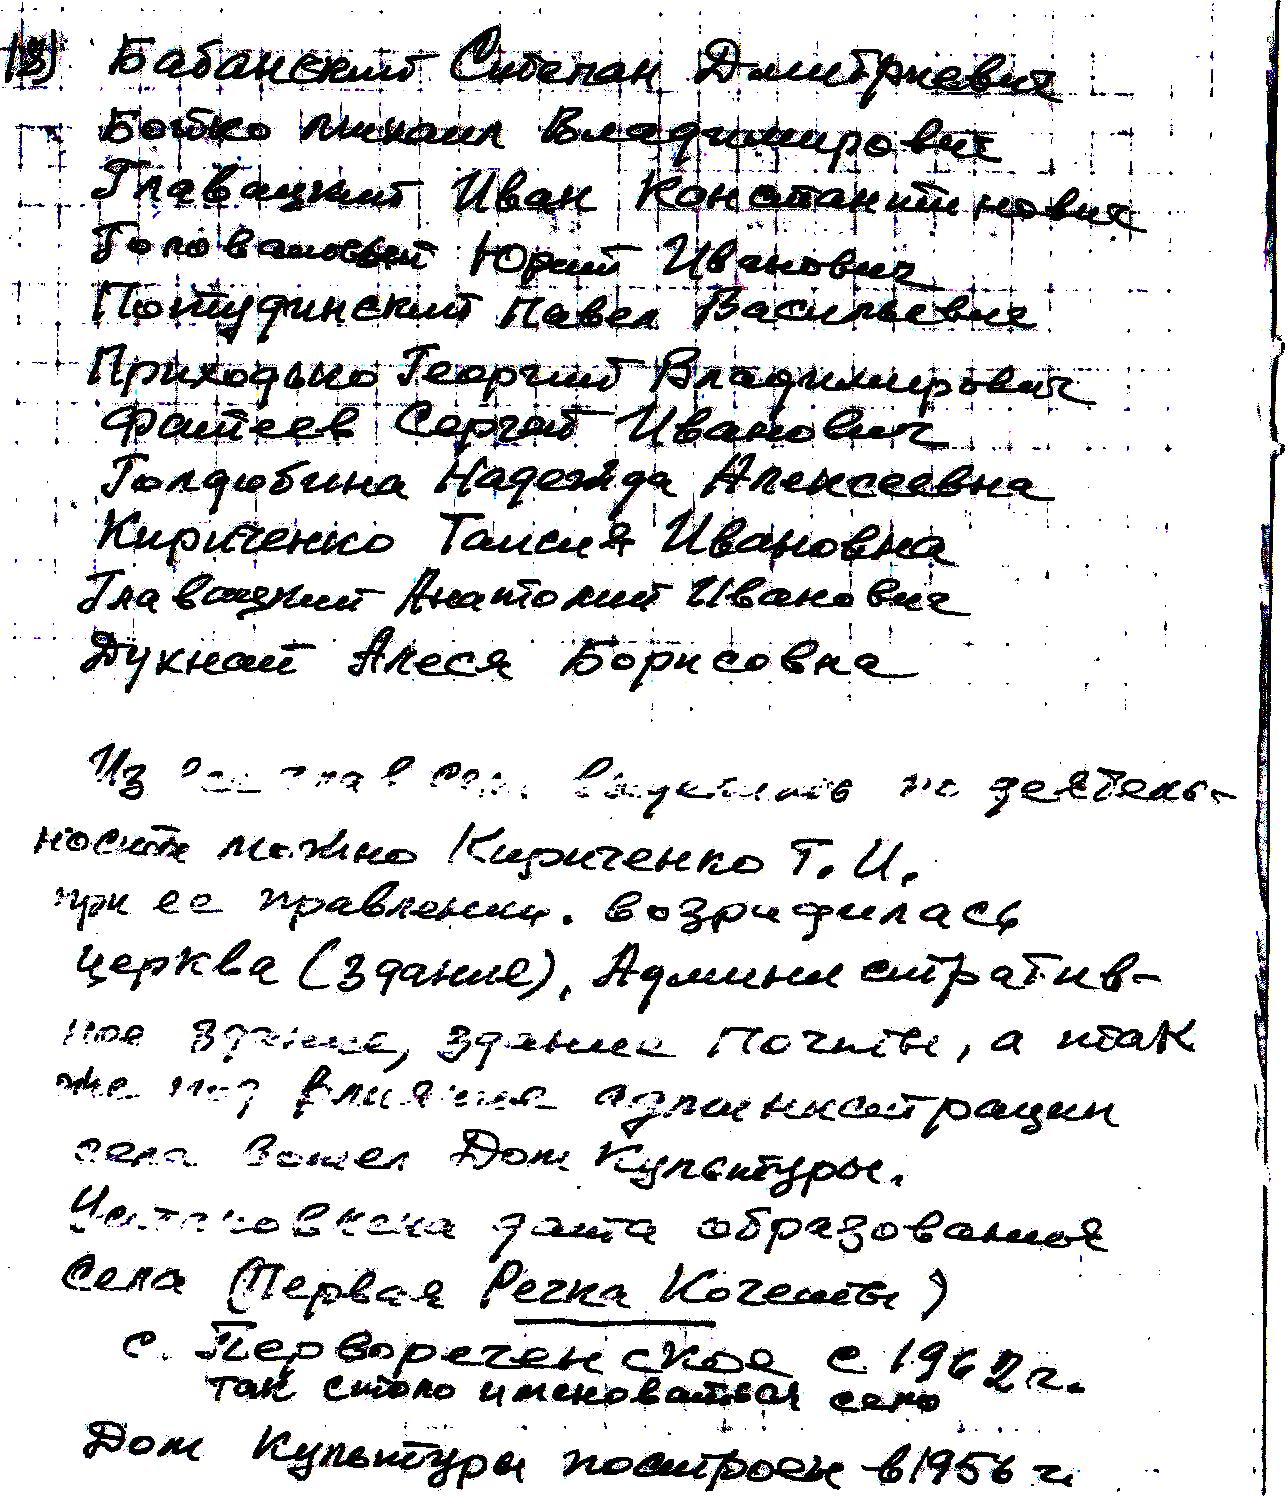 13) Бабанский Степан Дмитриевич
Бойко Михаил Владимирович
Главацкий Иван Константинович
Юрий Иванович
Потудинский Павел Васильевич
Приходько Георгий Владимирович
Фатеев Сергей Иванович
Голдобина Надежда Алексеевна
Кириченко Таисия Ивановна
Главацкий Анатолий Иванович
Дукнай Алеся Борисовна
Из всех глав села выделить по деятель-
ности можно Кириченко Т. И.
при ее правлении. возридилась
церква (здание), Админи стратив-
ное здание, здание Почты, а так
же под влияние администрации
села вошел Дом Культуры.
Установлена дата образования
Села (Первая Речка Кочеты)
с. Первореченское с 1962 г.
так стало именоваться село
Дом Культуры построен в 1956 г.